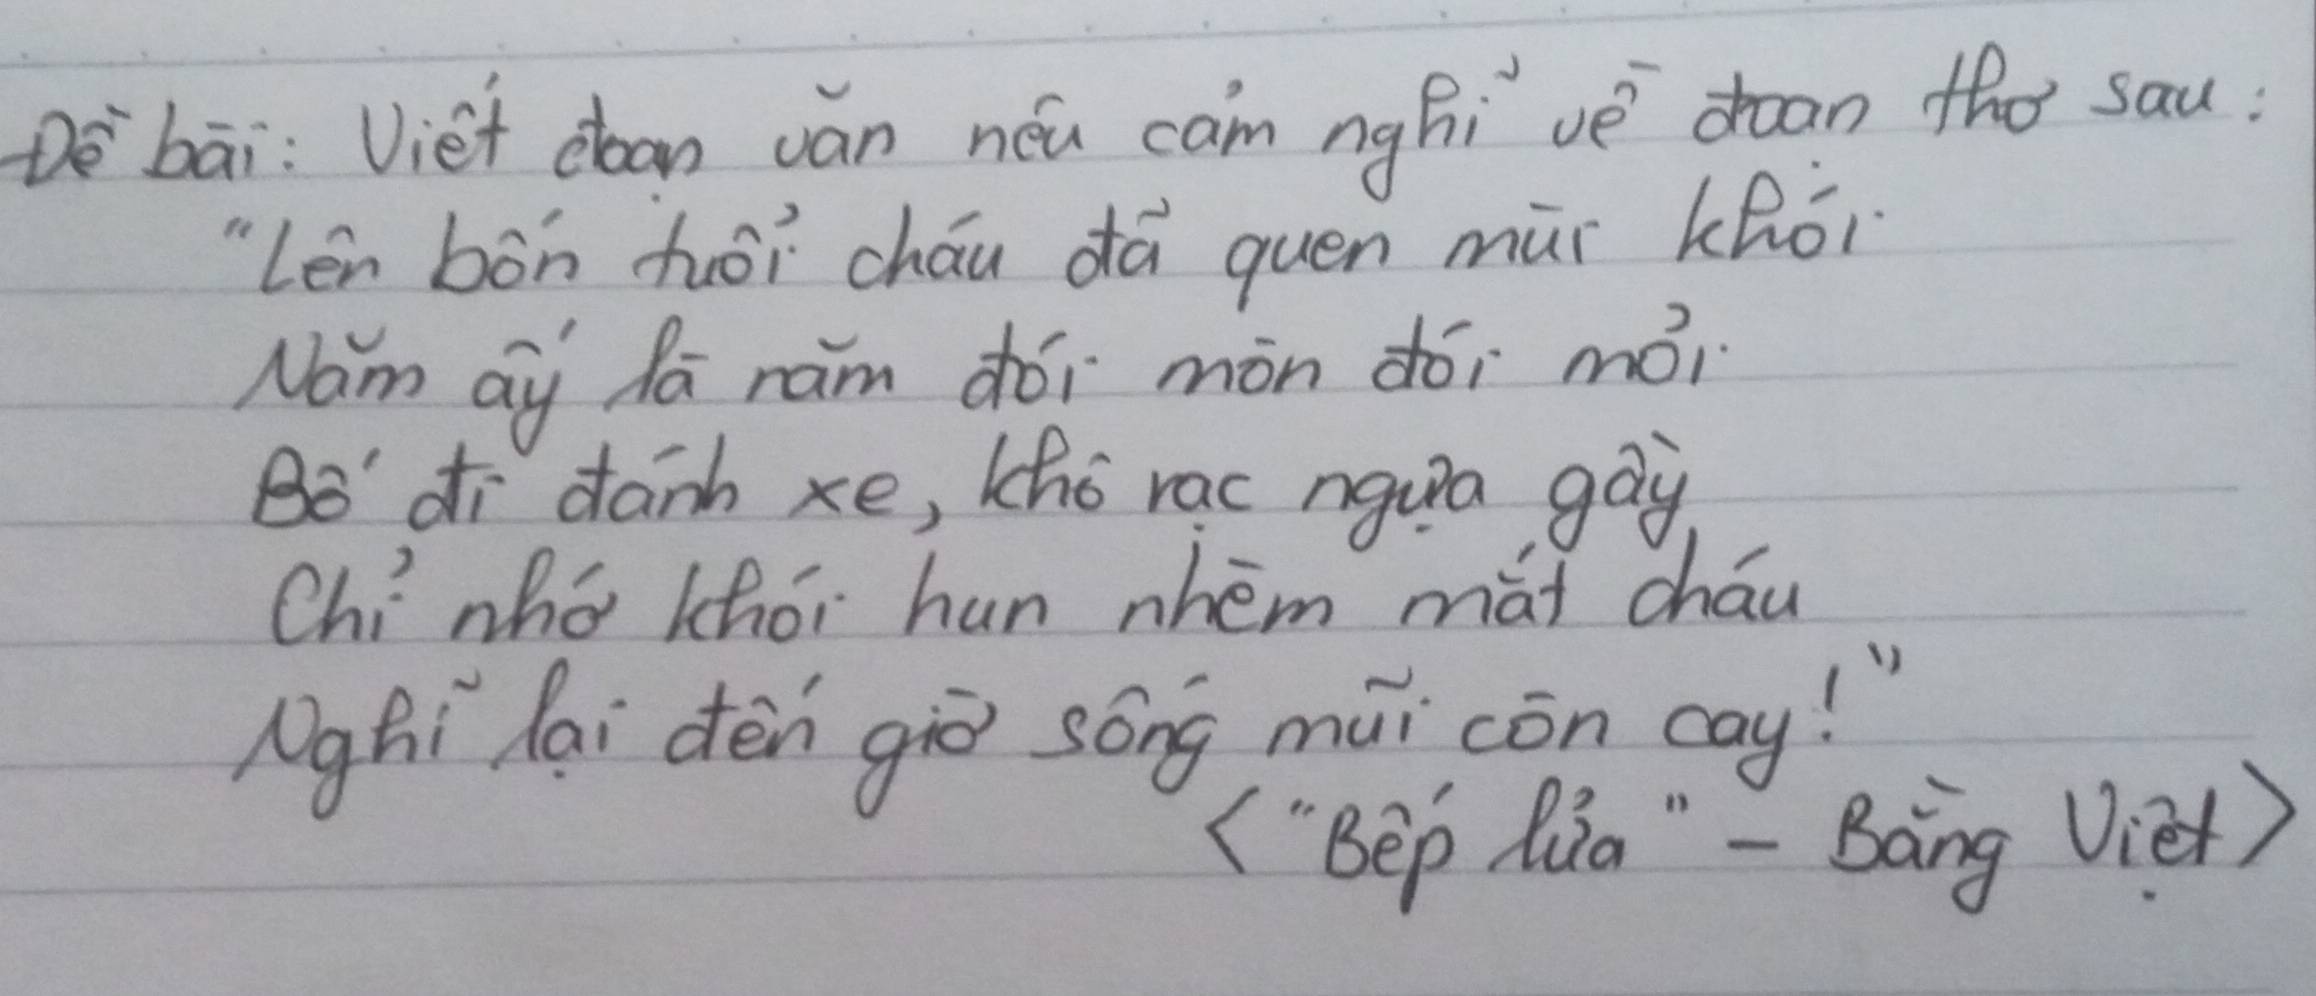 Đề bài: Viết đoạn văn nêu cảm nghĩ về đoạn thơ sau:
"Lên bốn tuổi cháu đã quen mùi khói
Năm ấy là năm đói mòn đói mỏi
Bố đi đánh xe, khô rạc ngựa gầy
Chỉ nhớ khói hun nhèm mắt cháu
Nghĩ lại đến giờ sống mũi còn cay!"
<"Bếp lửa" - Bằng Việt>